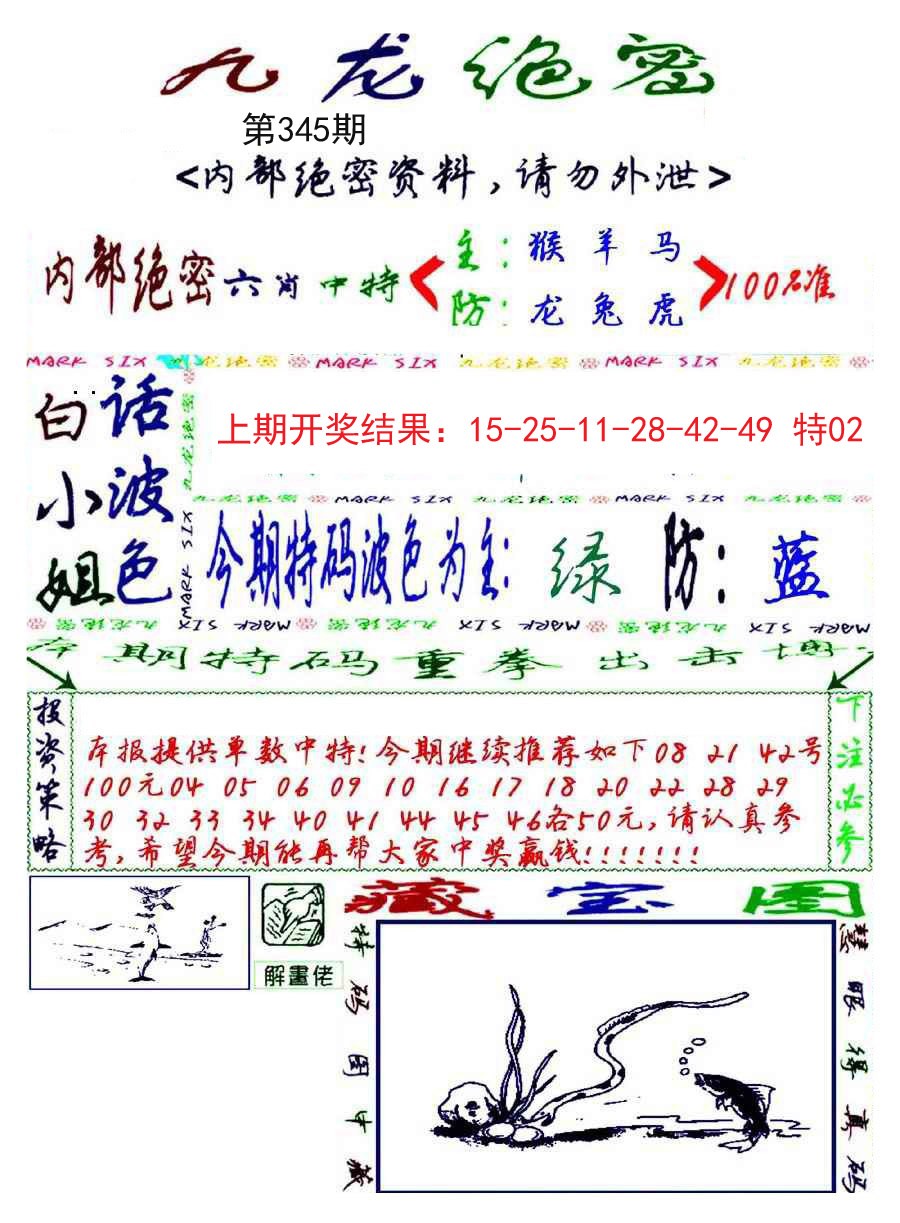 九龙绝密
第345期
<内部绝密资料,请勿外泄>
内部绝密六肖中特
主:猴羊马
防:龙兔虎
100%准
MARK SIX 九龙绝密 MARK SIX 九龙绝密 MARK SIX 九龙绝密
白话
小波
姐色
九龙绝密
MARK SIX
上期开奖结果：15-25-11-28-42-49 特02
九龙绝密 MARK SIX 九龙绝密 MARK SIX 九龙绝密
今期特码波色为主:绿 防:蓝
九龙绝密 MARK SIX 九龙绝密 MARK SIX 九龙绝密 MARK SIX
本期特码重拳出击
投资策略
本报提供单数中特!今期继续推荐如下08 21 42号
100元04 05 06 09 10 16 17 18 20 22 28 29
30 32 33 34 40 41 44 45 46各50元,请认真参
考,希望今期能再帮大家中奖赢钱!!!!!!!
下注必参
解畫佬
藏宝图
特码图中藏
慧眼得真码